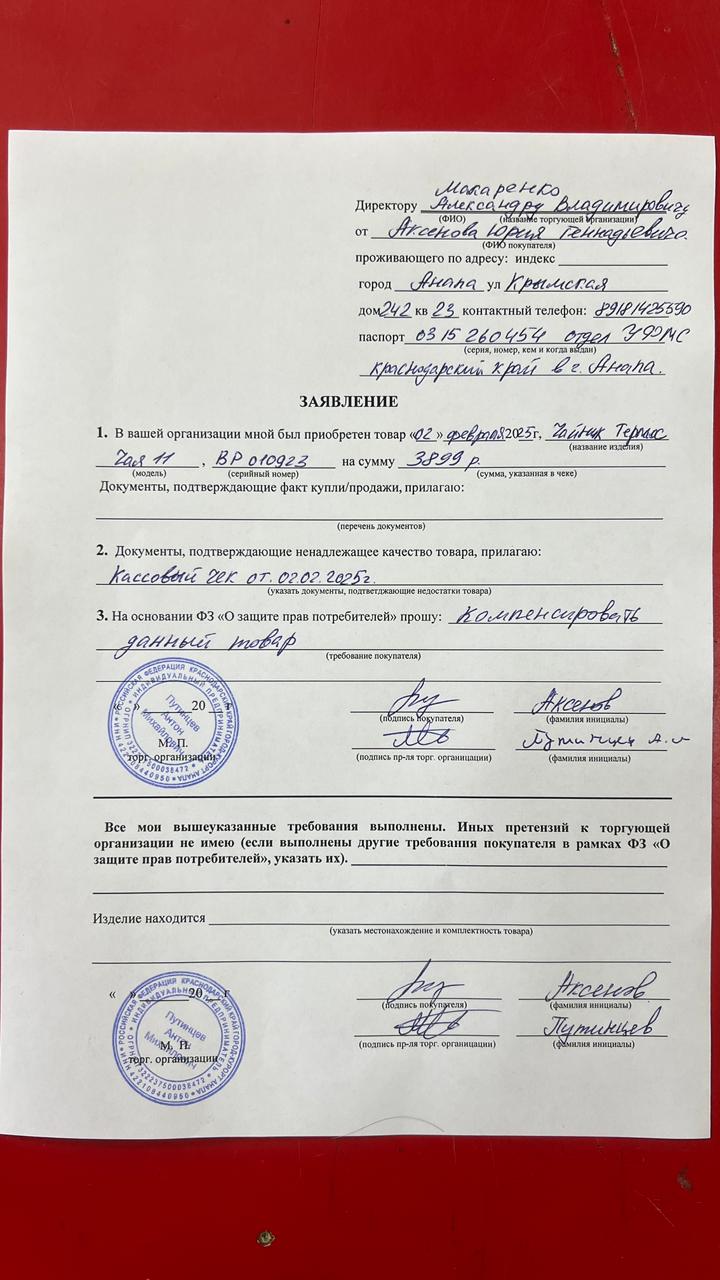 Макаренко
Директору Александру Владимировичу
(ФИО) (название торгующей организации)
от Аксенова Юрия Геннадьевича.
(ФИО покупателя)
проживающего по адресу: индекс
город Анапа ул Крымская
дом 242 кв 23 контактный телефон: 89181425590
паспорт 03 15 260454 отдел УФМС
(серия, номер, кем и когда выдан)
краснодарский край в г. Анапа.
ЗАЯВЛЕНИЕ
1. В вашей организации мной был приобретен товар «02» февраля 2025г, Чайник
(название изделия)
11, ВР 010923 на сумму 3899 р.
(модель) (серийный номер) (сумма, указанная в чеке)
Документы, подтверждающие факт купли/продажи, прилагаю:
(перечень документов)
2. Документы, подтверждающие ненадлежащее качество товара, прилагаю:
Кассовый чек от. 02.02.2025г.
(указать документы, подтветджающие недостатки товара)
3. На основании ФЗ «О защите прав потребителей» прошу: компенсировать
данный товар
(требование покупателя)
« » 20 г
Аксенов
(подпись покупателя) (фамилия инициалы)
Путинцев А.М
М. П.
торг. организации (подпись пр-ля торг. органицации) (фамилия инициалы)
РОССИЙСКАЯ ФЕДЕРАЦИЯ КРАСНОДАРСКИЙ КРАЙ ГОРОД-КУРОРТ АНАПА
ИНДИВИДУАЛЬНЫЙ ПРЕДПРИНИМАТЕЛЬ
Путинцев
Антон
Михайлович
Все мои вышеуказанные требования выполнены. Иных претензий к торгующей
организации не имею (если выполнены другие требования покупателя в рамках ФЗ «О
защите прав потребителей», указать их).
Изделие находится
(указать местонахождение и комплектность товара)
« » 20 г
Аксенов
(подпись покупателя) (фамилия инициалы)
Путинцев
М. П.
торг. организации (подпись пр-ля торг. органицации) (фамилия инициалы)
РОССИЙСКАЯ ФЕДЕРАЦИЯ КРАСНОДАРСКИЙ КРАЙ ГОРОД-КУРОРТ АНАПА
ИНДИВИДУАЛЬНЫЙ ПРЕДПРИНИМАТЕЛЬ
Путинцев
Антон
Михайлович